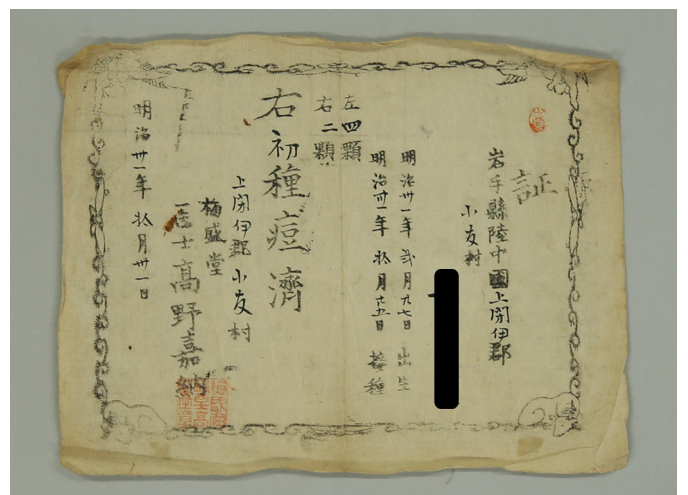 証
岩手縣陸中國上閉伊郡
小友村
明治卅一年 弐月九七日 出生
明治卅一年 拾月廿五日 接種
左四顆
右二顆
右初種痘濟
上閉伊郡小友村
梅盛堂
医士高野嘉納
明治卅一年 拾月卅一日